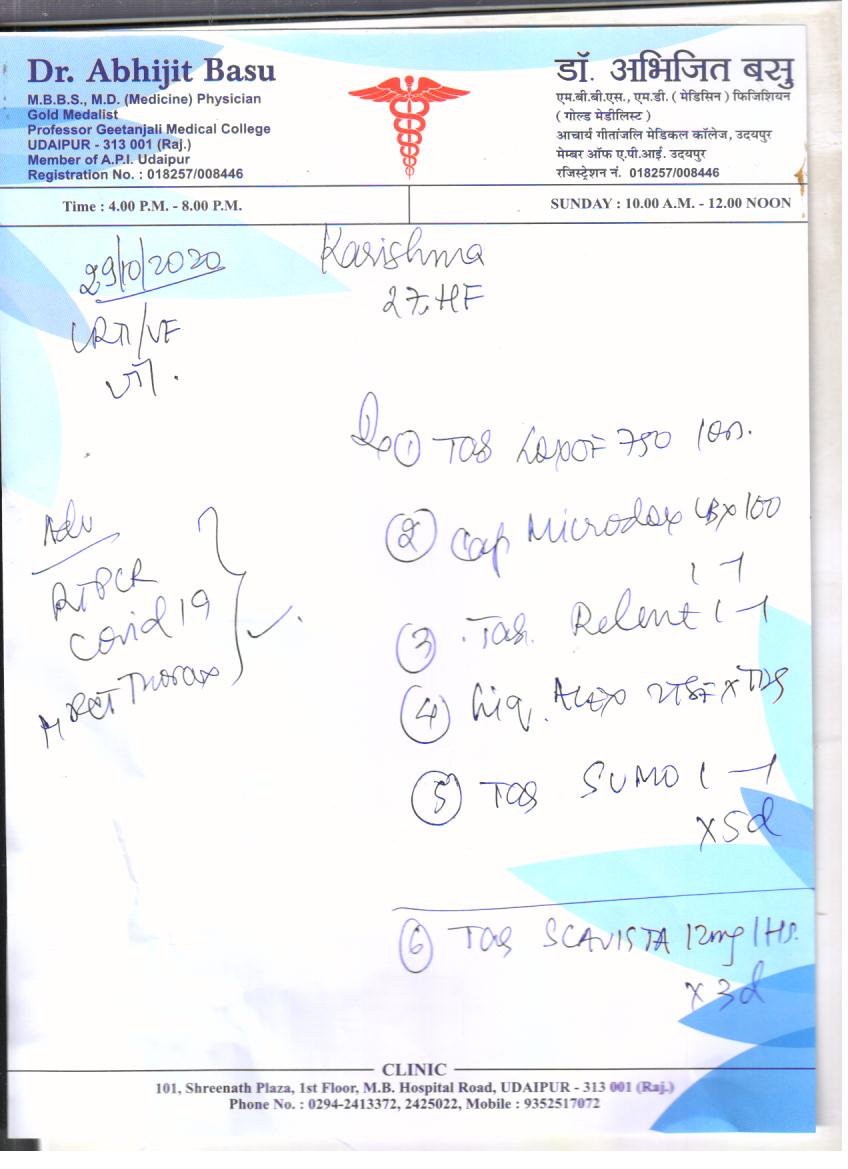 Dr. Abhijit Basu
M.B.B.S., M.D. (Medicine) Physician
Gold Medalist
Professor Geetanjali Medical College
UDAIPUR - 313 001 (Raj.)
Member of A.P.I. Udaipur
Registration No. : 018257/008446
डॉ. अभिजित बसु
एम.बी.बी.एस., एम.डी. ( मेडिसिन ) फिजिशियन
( गोल्ड मेडीलिस्ट )
आचार्य गीतांजलि मेडिकल कॉलेज, उदयपुर
मेम्बर ऑफ ए.पी.आई. उदयपुर
रजिस्ट्रेशन नं. 018257/008446
Time : 4.00 P.M. - 8.00 P.M.
SUNDAY : 10.00 A.M. - 12.00 NOON
29/10/2020
Karishma
27
URTI/VF
① Tab 750 1 OD.
② Cap Microdox LBX 100
1 - 1
③ Tab. Relent 1 - 1
④ Liq. Alex 2TSF x TDS
⑤ Tab SUMO 1 - 1
x 5d
⑥ Tab SCAVISTA 12mg 1 HS.
x 3d
Adv
RTPCR
Covid 19
Thorax
CLINIC
101, Shreenath Plaza, 1st Floor, M.B. Hospital Road, UDAIPUR - 313 001 (Raj.)
Phone No. : 0294-2413372, 2425022, Mobile : 9352517072